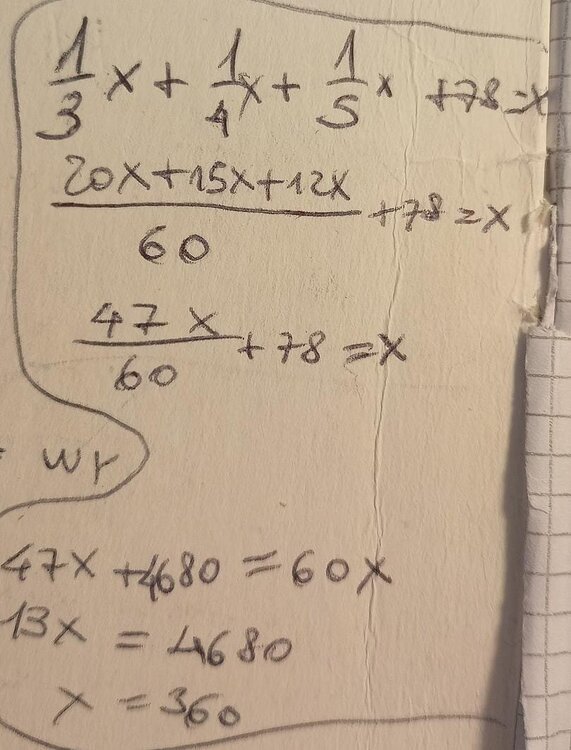 1/3 x + 1/4 x + 1/5 x + 78 = x
20x+15x+12x/60 + 78 = x
47x/60 + 78 = x
wr
47x + 4680 = 60x
13x = 4680
x = 360